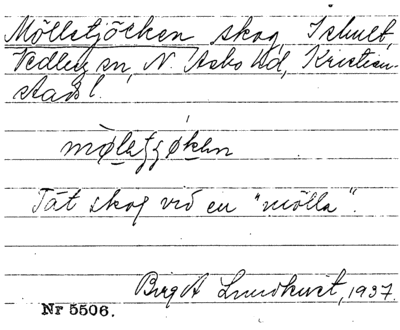 Mölletjöcken skog Ishult,
Vedby sn, N. Åsbo hd, Kristian-
stads l.
Tät skog vid en "mölla".
Birgit Lundkvist, 1937.
Nr 5506.